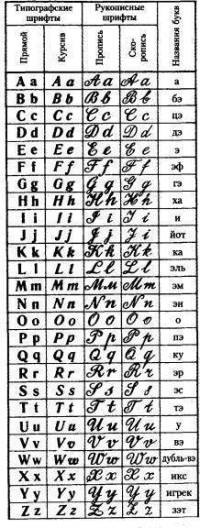 Типографские шрифты Рукописные шрифты Названия букв
Прямой Курсив Пропись Скоропись
A a A a A a A a а
B b B b B b B b бэ
C c C c C c C c цэ
D d D d D d D d дэ
E e E e E e E e э
F f F f F f F f эф
G g G g G g G g гэ
H h H h H h H h ха
I i I i I i I i и
J j J j J j J j йот
K k K k K k K k ка
L l L l L l L l эль
M m M m M m M m эм
N n N n N n N n эн
O o O o O o O o о
P p P p P p P p пэ
Q q Q q Q q Q q ку
R r R r R r R r эр
S s S s S s S s эс
T t T t T t T t тэ
U u U u U u U u у
V v V v V v V v вэ
W w W w W w W w дубль-вэ
X x X x X x X x икс
Y y Y y Y y Y y игрек
Z z Z z Z z Z z зэт